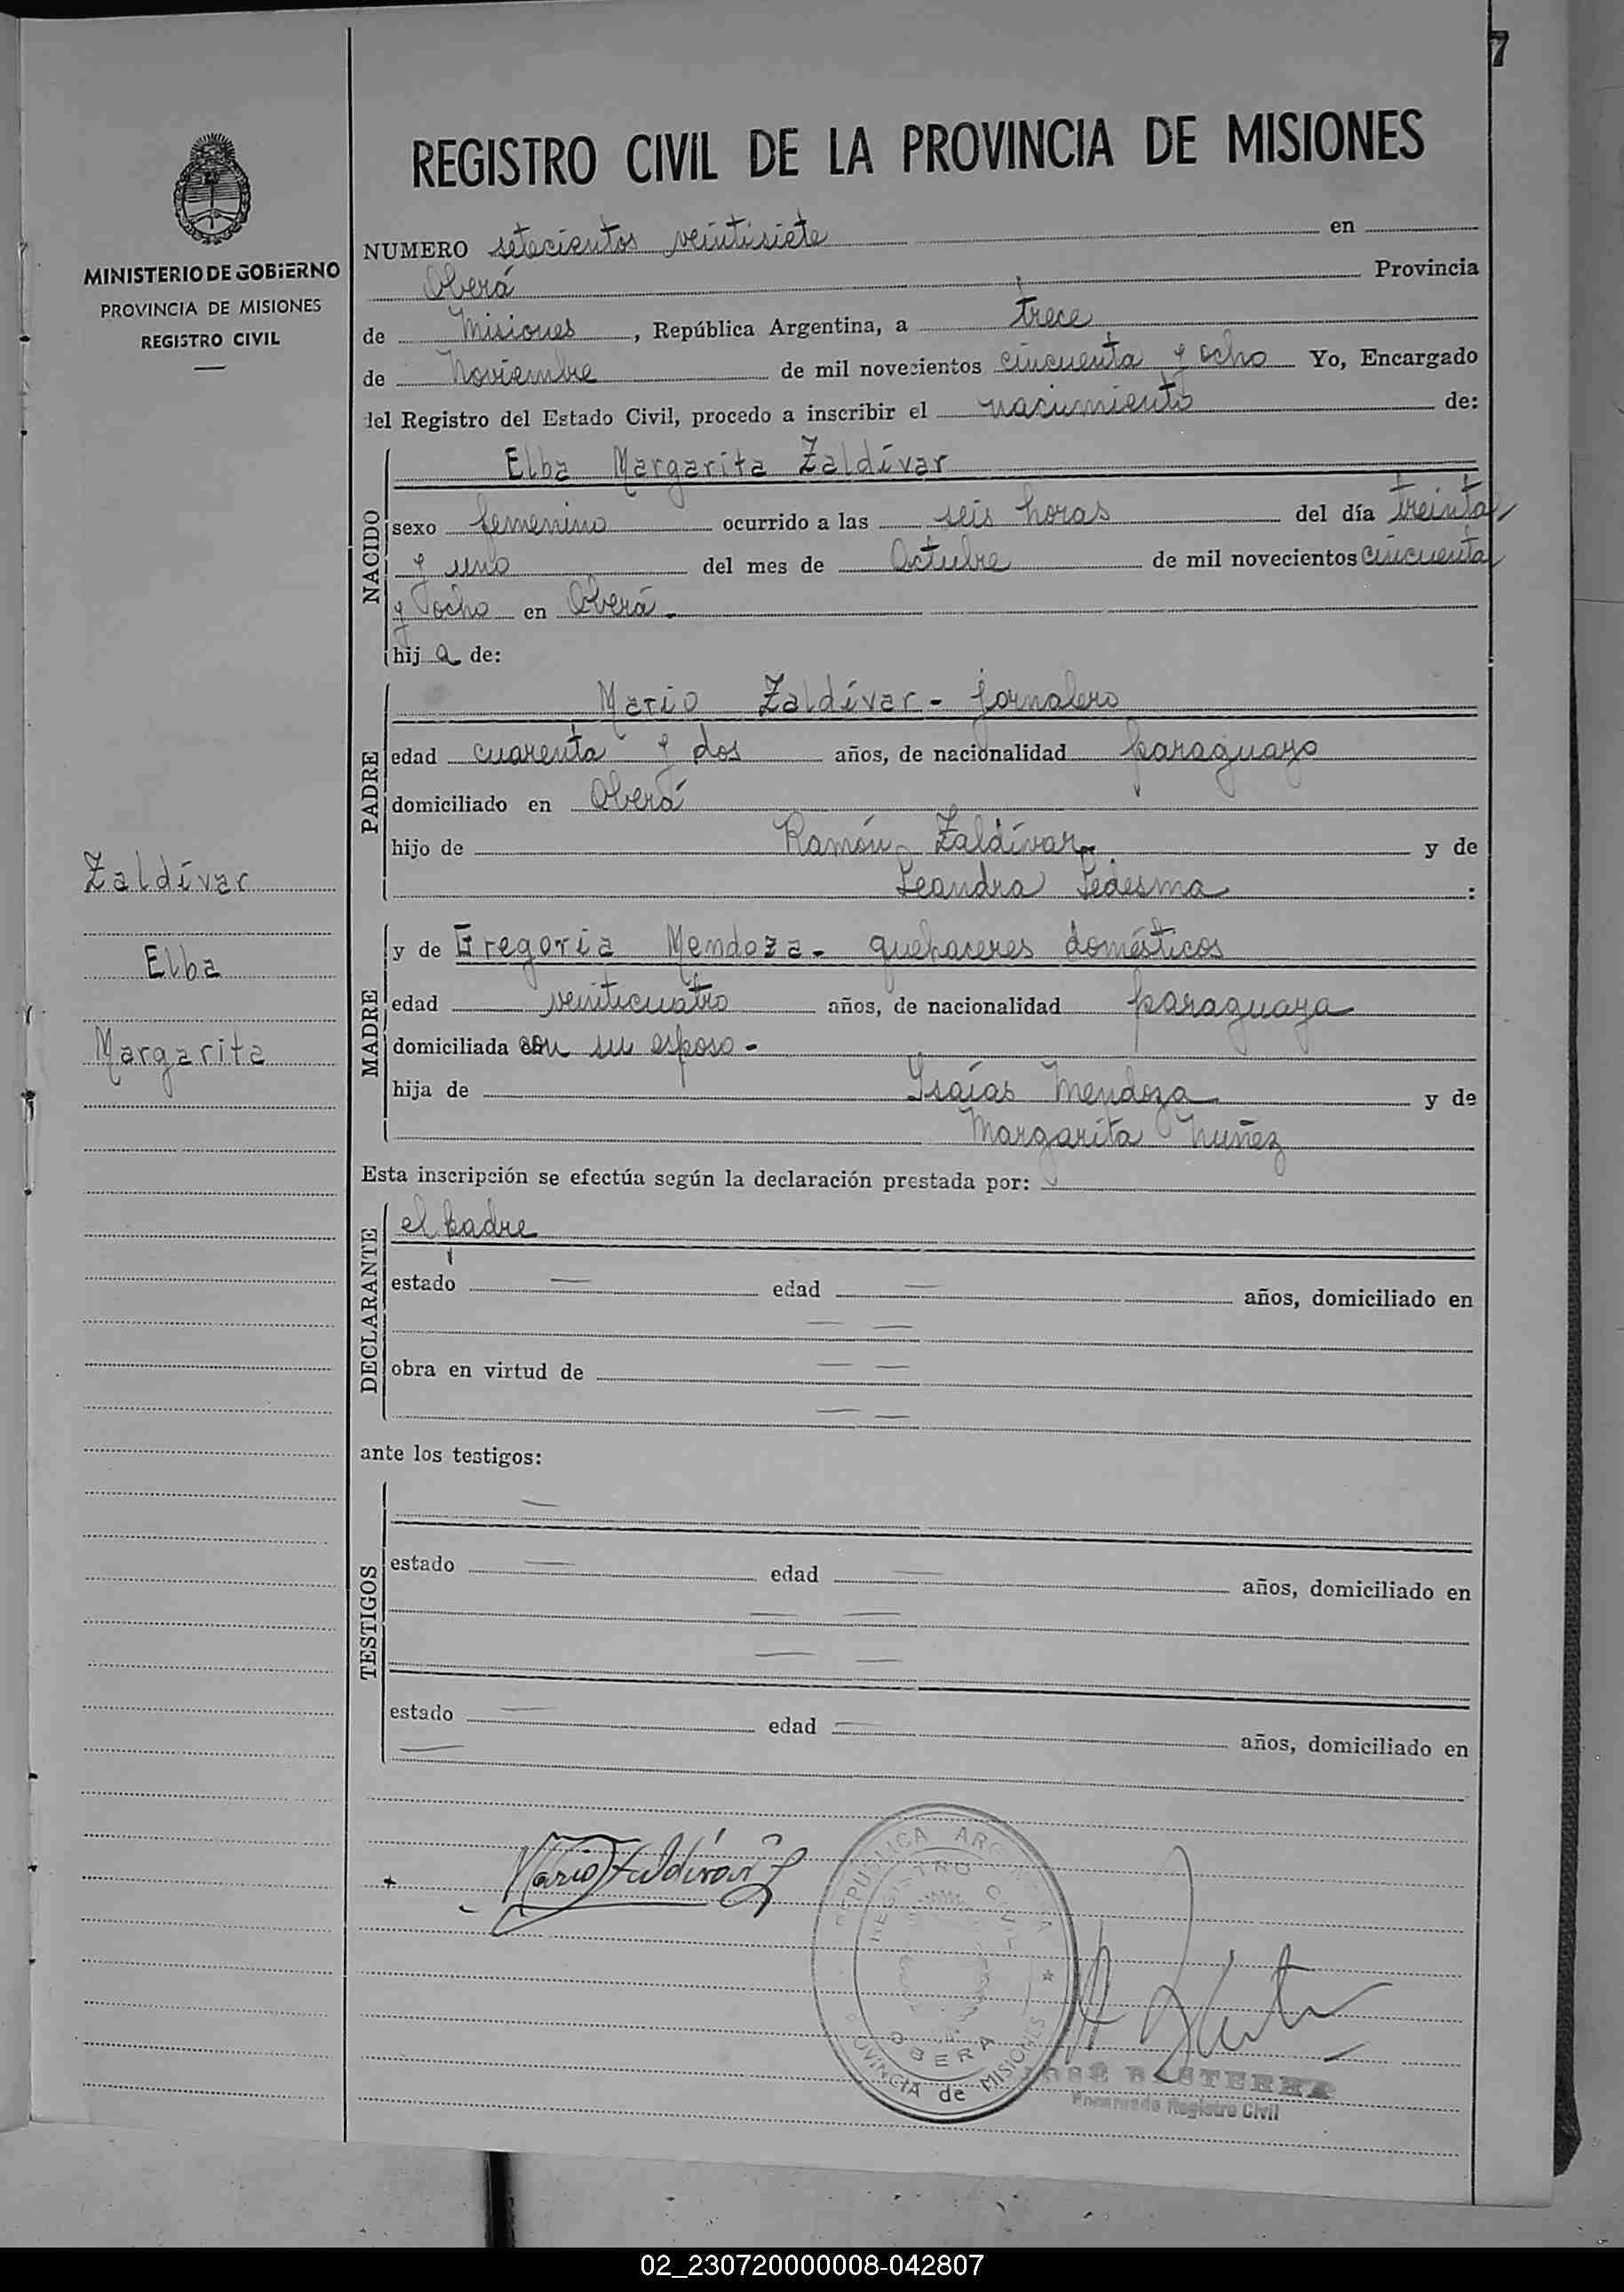 7
REGISTRO CIVIL DE LA PROVINCIA DE MISIONES
MINISTERIO DE GOBIERNO
PROVINCIA DE MISIONES
REGISTRO CIVIL
NUMERO setecientos veintisiete en
Oberá Provincia
de Misiones, República Argentina, a trece
de Noviembre de mil novecientos cincuenta y ocho Yo, Encargado
del Registro del Estado Civil, procedo a inscribir el nacimiento de:
NACIDO
Elba Margarita Zaldívar
sexo femenino ocurrido a las seis horas del día treinta
y uno del mes de Octubre de mil novecientos cincuenta
y ocho en Oberá.
hija de:
PADRE
Mario Zaldívar - jornalero
edad cuarenta y dos años, de nacionalidad paraguayo
domiciliado en Oberá
hijo de Ramón Zaldívar y de
Leandra Ledesma :
Zaldívar
Elba
Margarita
MADRE
y de Gregoria Mendoza - quehaceres domésticos
edad veinticuatro años, de nacionalidad paraguaya
domiciliada con su esposo -
hija de Isaías Mendoza y de
Margarita Nuñez
Esta inscripción se efectúa según la declaración prestada por:
DECLARANTE
el padre
estado — edad — años, domiciliado en
— —
obra en virtud de — —
— —
ante los testigos:
TESTIGOS
—
estado — edad — años, domiciliado en
— —
— —
estado — edad — años, domiciliado en
—
Mario Zaldívar
REPUBLICA ARGENTINA
REGISTRO CIVIL
OBERA
PROVINCIA de MISIONES
JOSÉ BASTERRA
Encargado Registro Civil
02_230720000008-042807